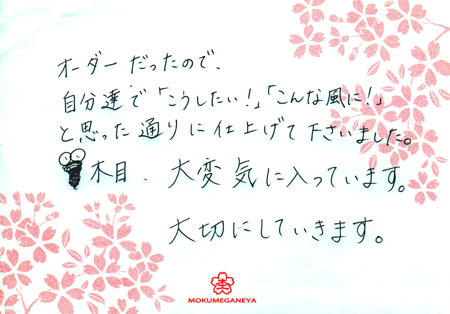 オーダーだったので、
自分達で「こうしたい!」「こんな風に!」
と思った通りに仕上げて下さいました。
木目、大変気に入っています。
大切にしていきます。
MOKUMEGANEYA